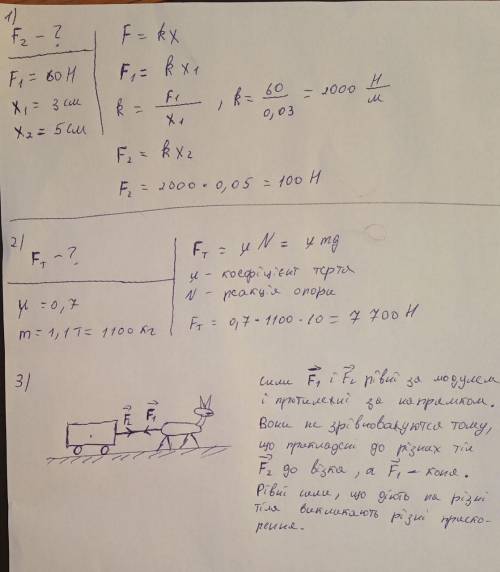 1)
F₂ - ?
F₁ = 60 Н
x₁ = 3 см
x₂ = 5 см
F = kx
F₁ = kx₁
k = F₁/x₁ , k = 60/0,03 = 2000 Н/м
F₂ = kx₂
F₂ = 2000 • 0,05 = 100 Н
2)
Fт - ?
μ = 0,7
m = 1,1 т = 1100 кг
Fт = μN = μmg
μ - коефіцієнт тертя
N - реакція опори
Fт = 0,7 • 1100 • 10 = 7 700 Н
3)
F₂ F₁
сили F₁ і F₂ рівні за модулем
і протилежні за напрямком.
Вони не зрівноважуются тому,
що прикладені до різних тіл
F₂ до візка, а F₁ - коня.
Рівні сили, що діють на різні
тіла викликають різні приско-
рення.